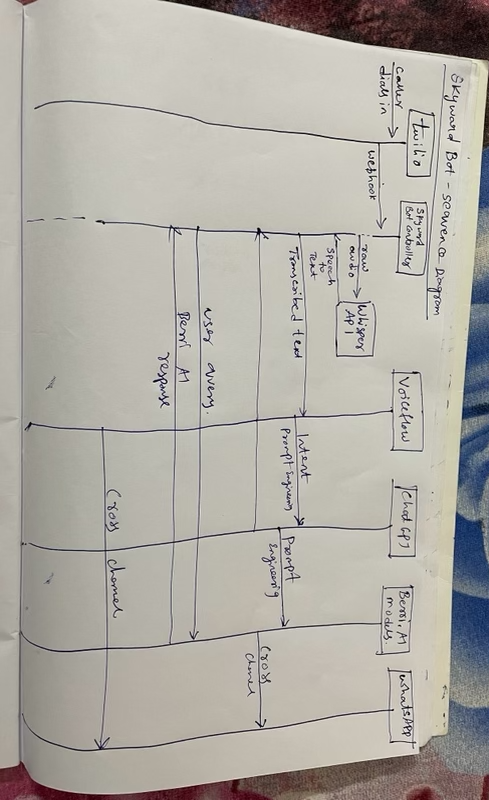 Skyward Bot - sequence Diagram
caller
dials in
twilio
webhook
Skyward
Bot controller
raw
audio
Whisper
API
Speech
to
Text
Transcribed text
Voiceflow
Intent
Prompt Engineering
ChatGPT
Prompt
Engineering
Berri.AI
models.
WhatsApp
Cross
channel
user query
Berri AI
response
Cross channel